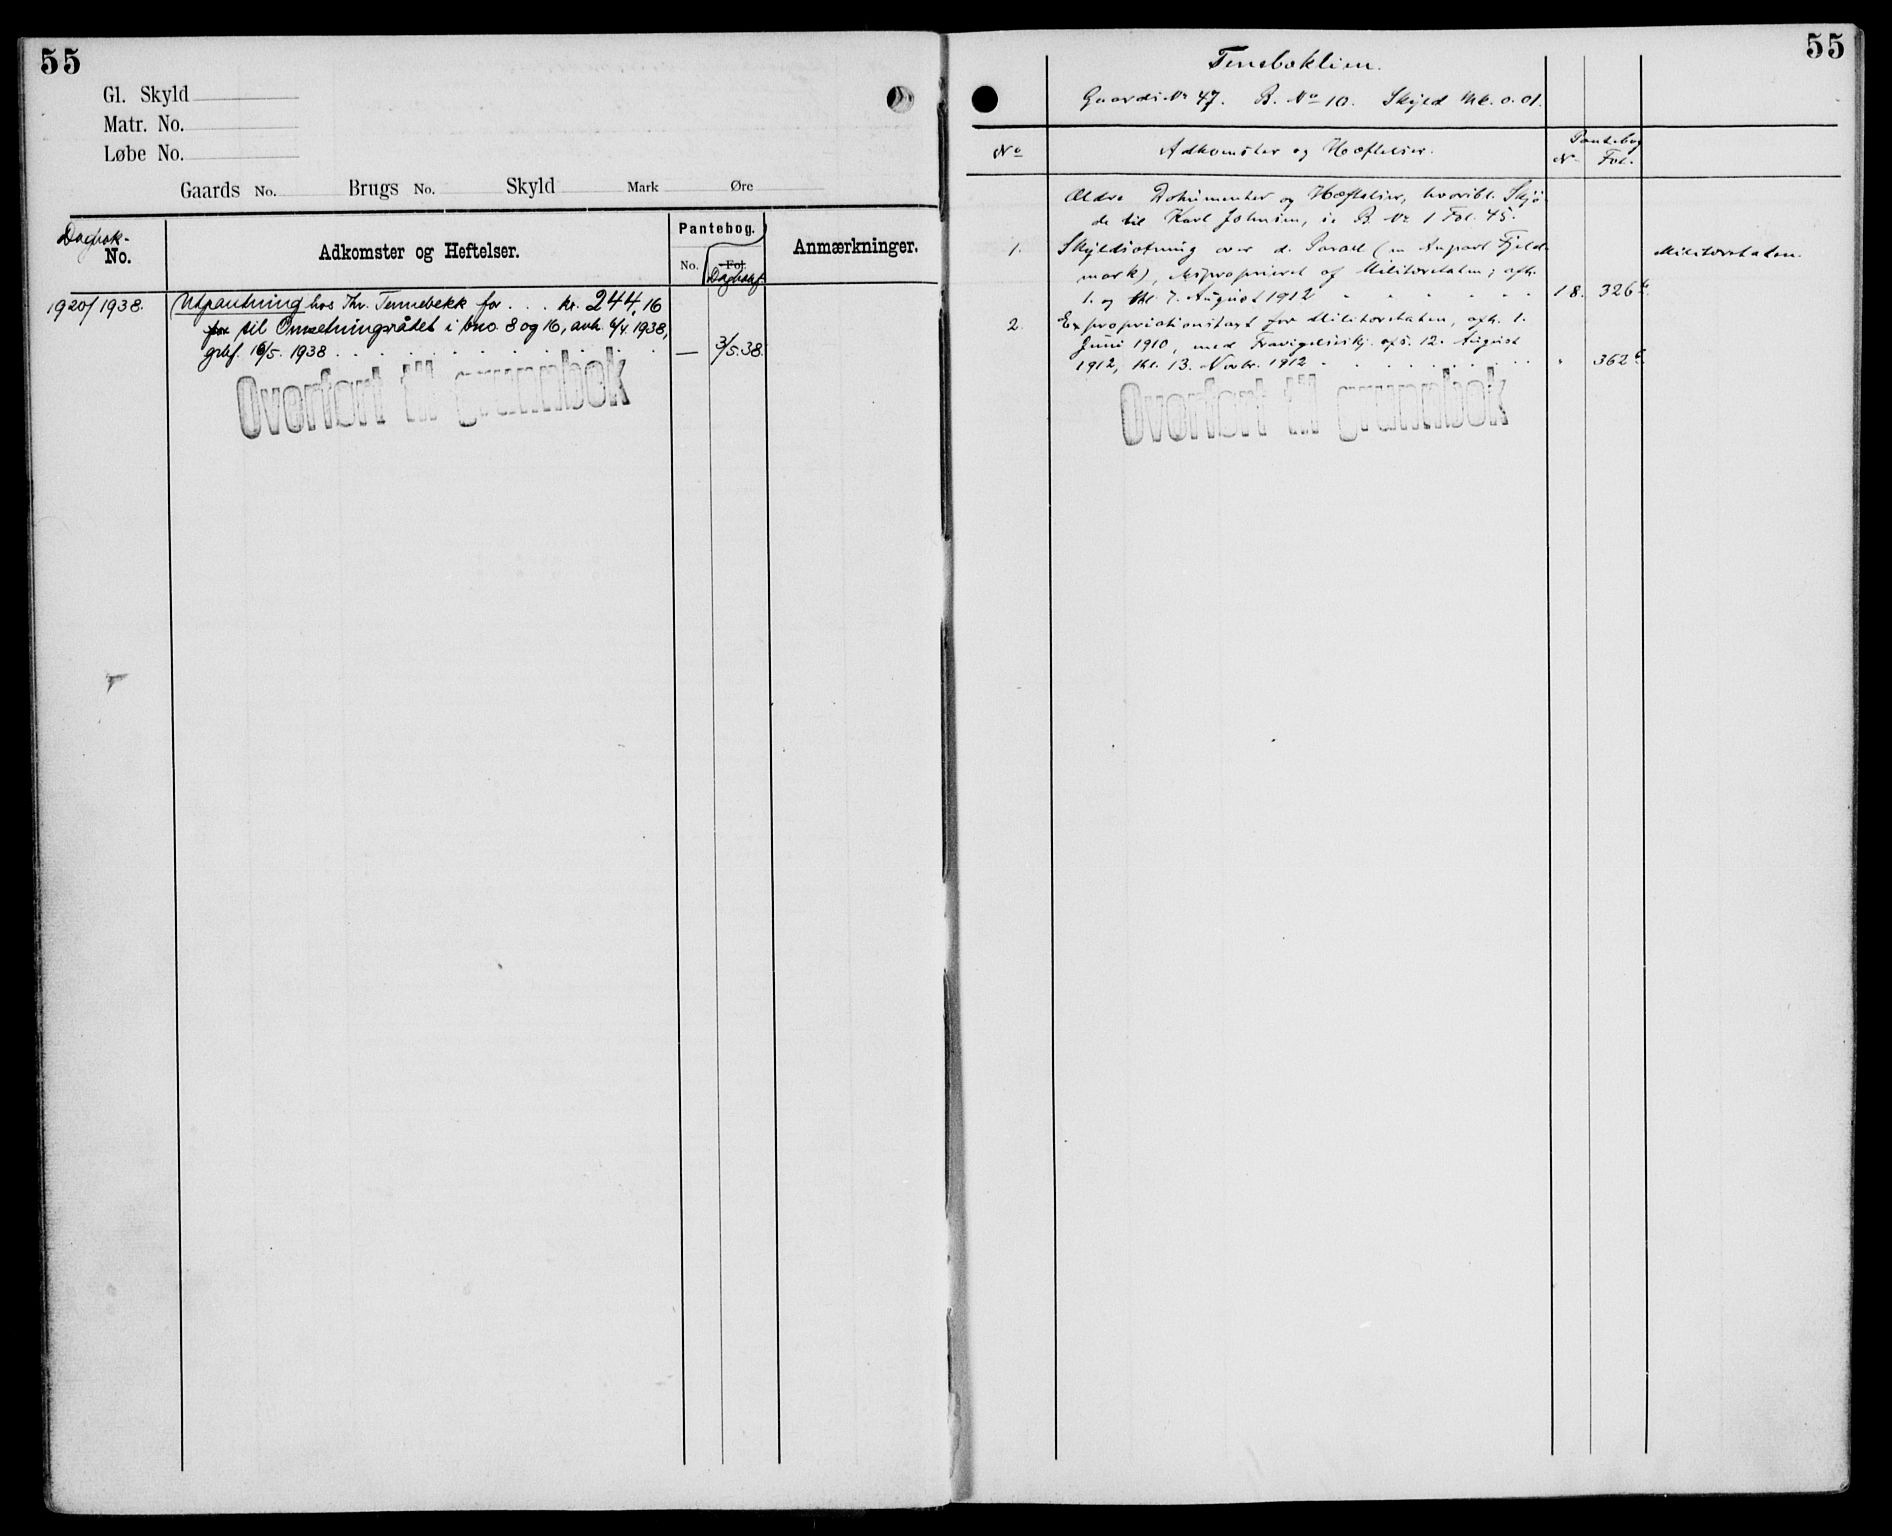 55
Gl. Skyld
Matr. No.
Løbe No.
Gaards No. Brugs No. Skyld Mark Øre
Dagbok-
No.
Adkomster og Heftelser.
Pantebog.
No. Fol.
Dagbokf.
Anmærkninger.
1920/1938. Utpantning hos Thv. Tennebekk for . . . kr. 244,16
for til Omsetningsrådet i bno. 8 og 16, avh. 6/4 1938,
grbf. 16/5. 1938 . . . — 3/5.38.
Overført til grunnbok
55
Tenebæklien.
Gaards No 47. B. No 10. Skyld Mk. 0.01.
No Adkomster og Hæftelser. Pantebog
No Fol.
Ældre Dokumenter og Hæftelser, hvoribl. Skjø-
de til Karl Johnsen, is B. Nr 1 Fol. 45.
1. Skyldsætning over d. Parcel (en Anpart Fjeld- Militæretaten.
mark), exproprieret af Militæretaten; afh.
1. og thl. 7. August 1912 . . . 18. 326
2. Expropriationstaxt for Militæretaten, afh. 1.
Juni 1910, med Fravigelseskj. afs. 12. August
1912, thl. 13. Novbr. 1912 . . . " 362
Overført til grunnbok